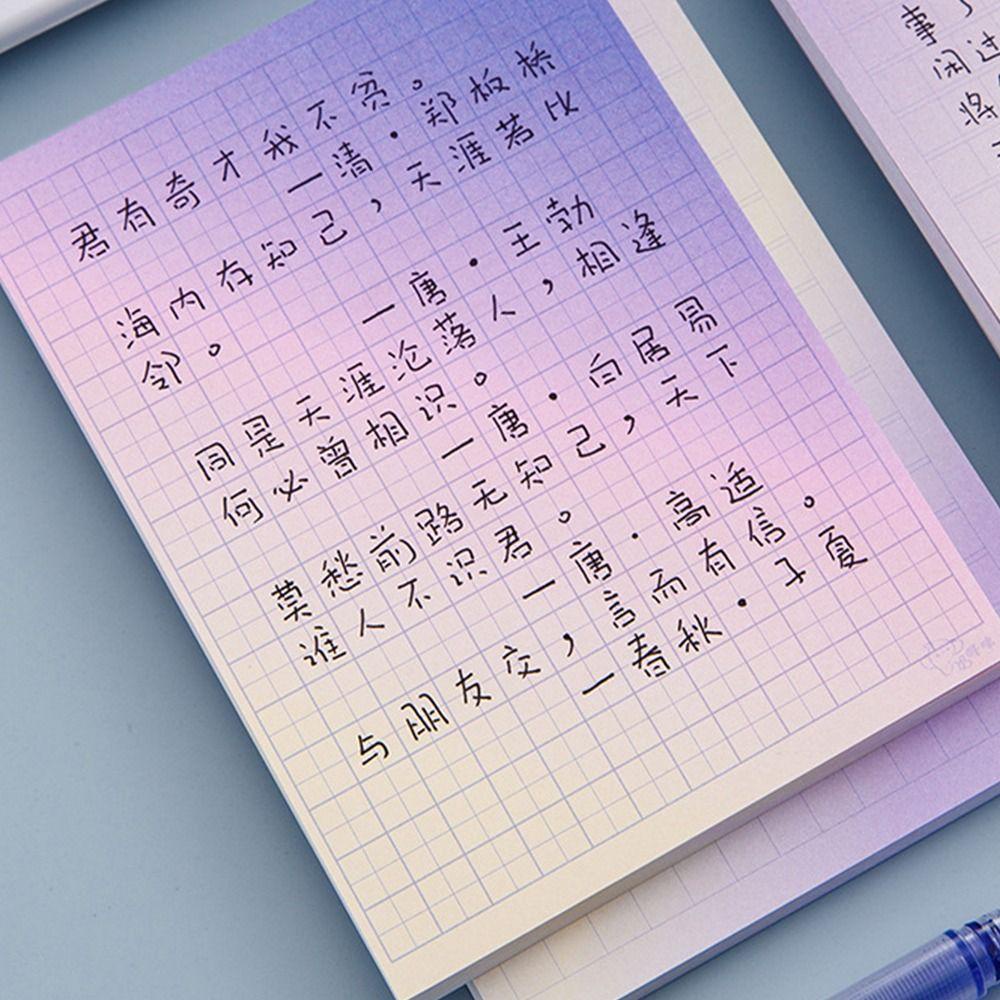 君有奇才我不贫。
一清·郑板桥
海内存知己，天涯若比
邻。
一唐·王勃
同是天涯沦落人，相逢
何必曾相识。
一唐·白居易
莫愁前路无知己，天下
谁人不识君。
一唐·高适
与朋友交，言而有信。
一春秋·子夏
事了
闲过
将